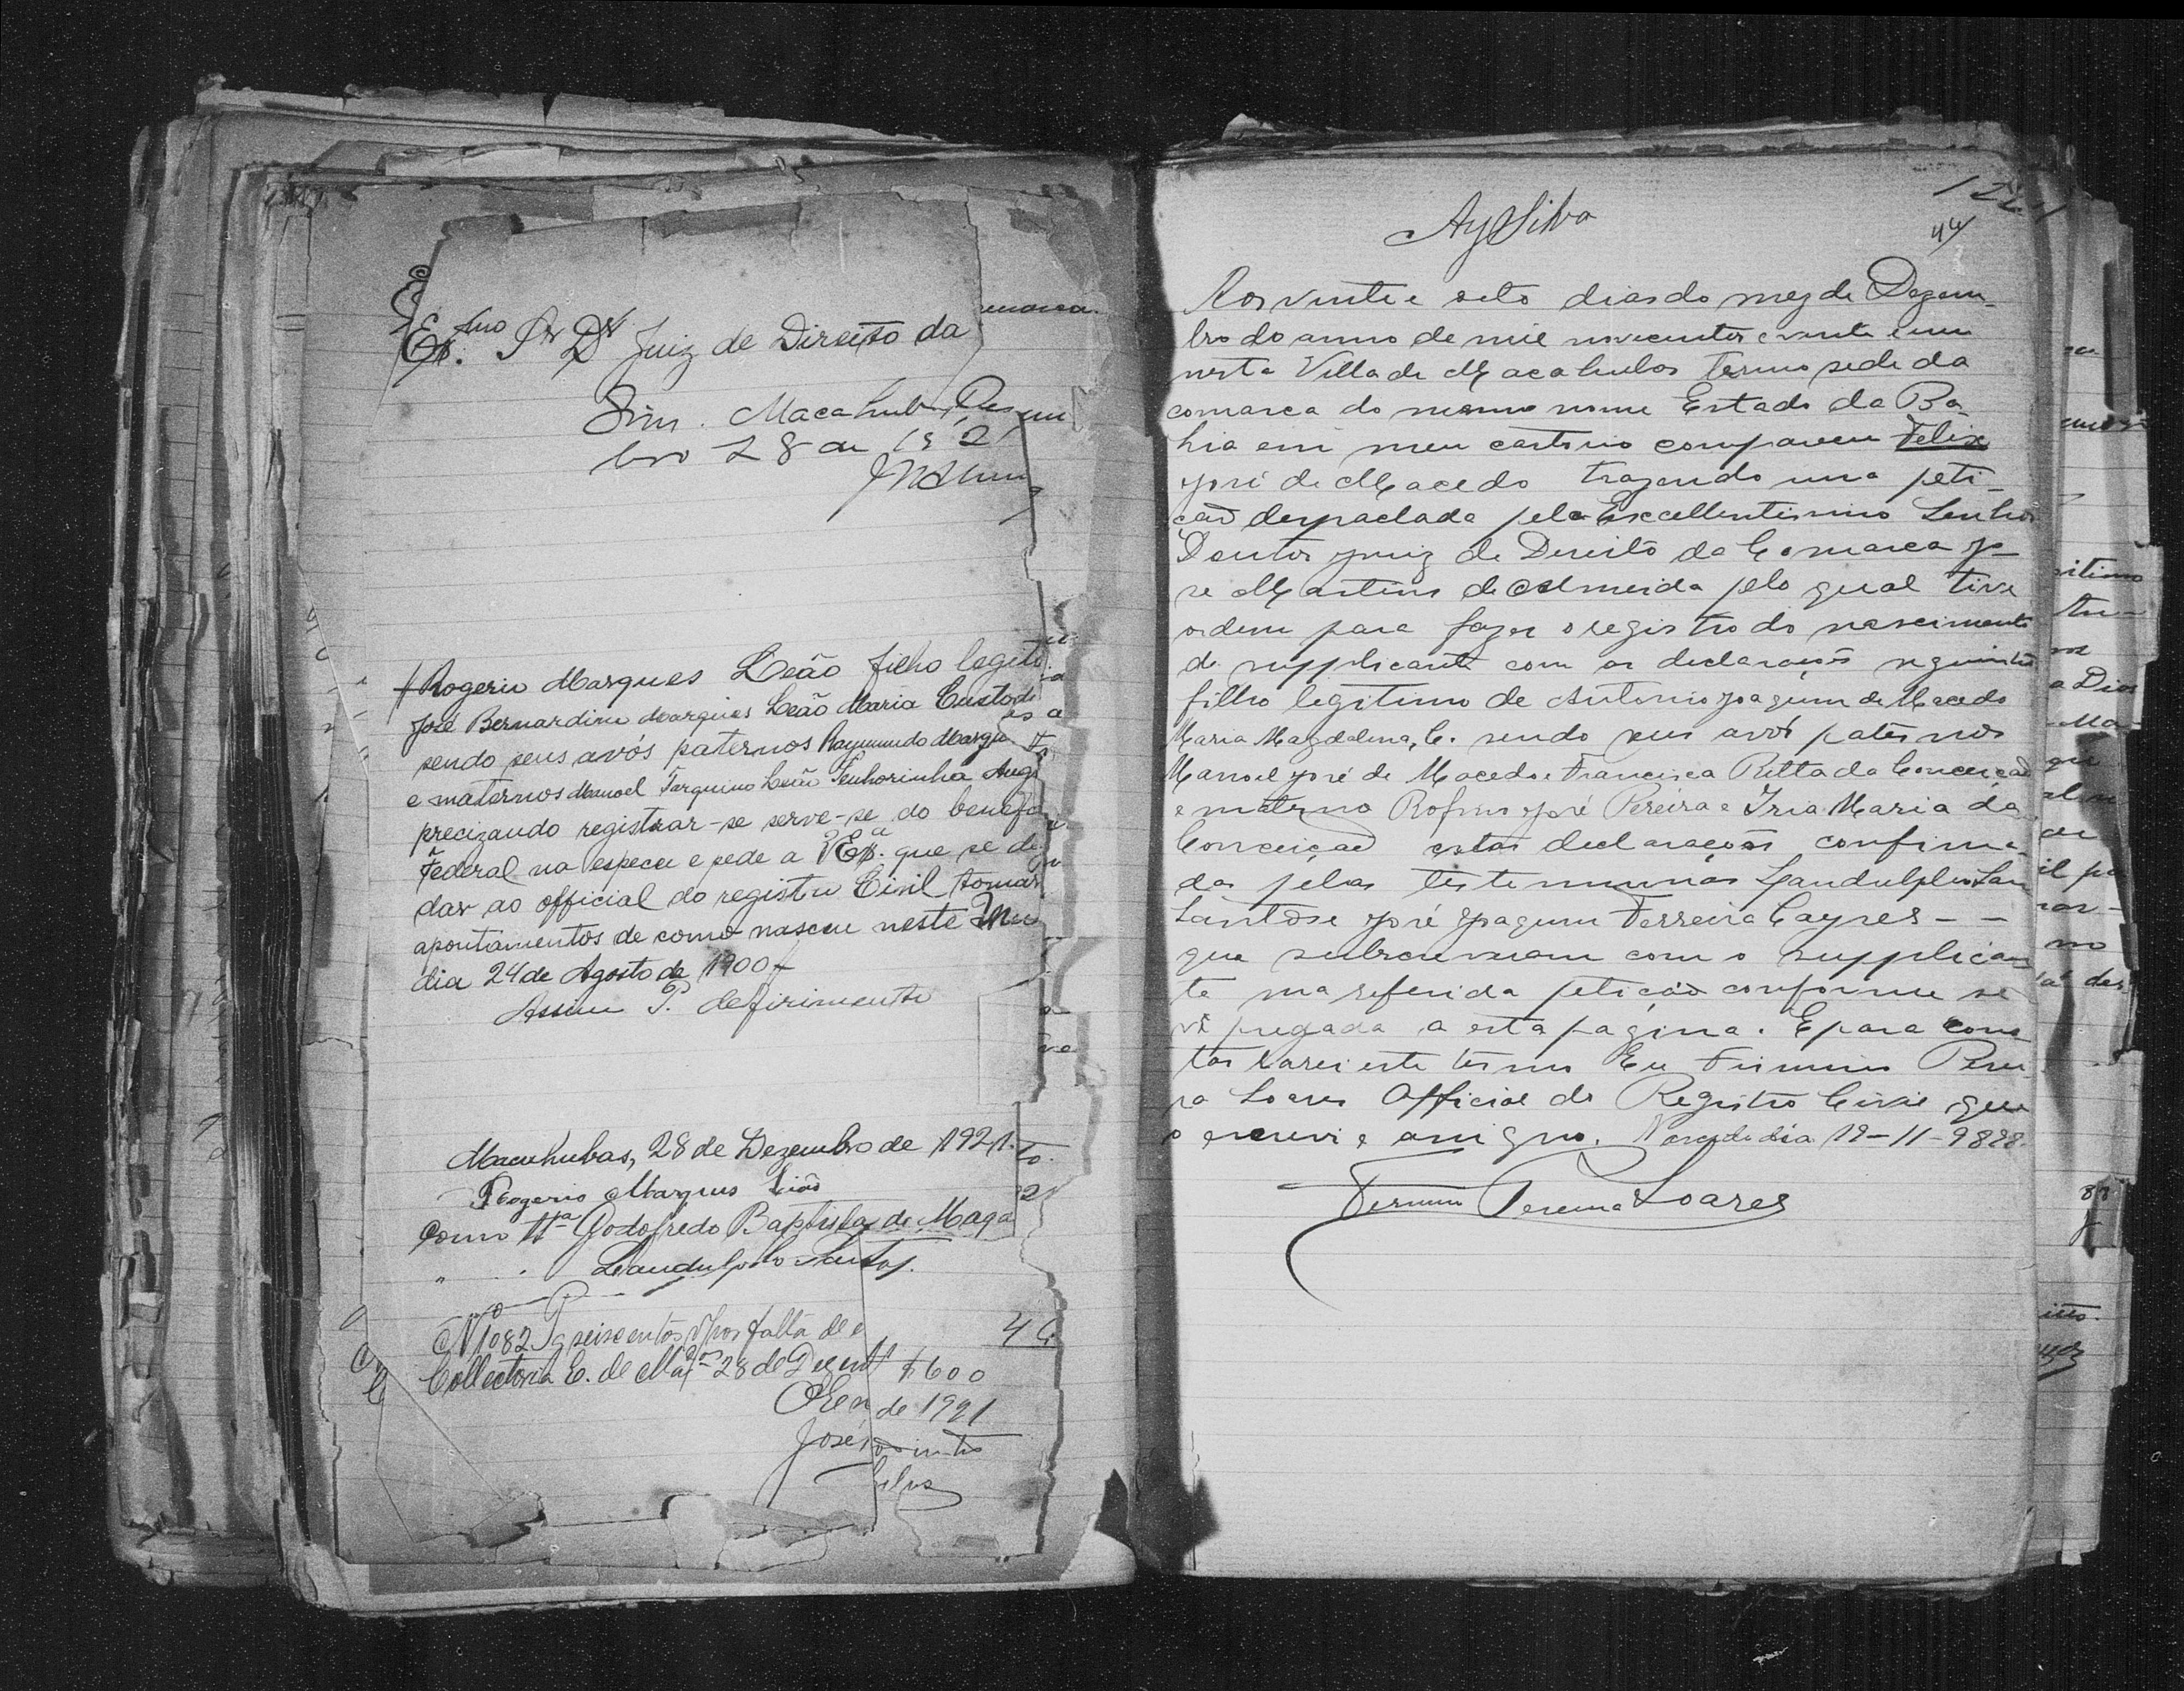 Ex.mo Sr Dr Juiz de Direito da
Sim. Macahubas, Dezem
bro 28 de 1921
Rogerio Marques Leão filho legiti
José Bernardino Marques Leão Maria Custodi
sendo seus avós paternos Raymundo Marque
e maternos Manoel Tarquino Leão Senhorinha Aug
precizando registrar-se serve-se do benefi
Federal na especie e pede a V Ex.a que se di
dar ao official do registro Civil tomar
apontamentos de como nasceu neste Mu
dia 24 de Agosto de 1900
Assim P. defirimento
Macahubas, 28 de Dezembro de 1921.
Rogerio Marques Leão
Como tta Godofredo Baptista de Maga
" Landulpho Santos.
No 1082 Pg seiscentos rs por falta de e
Collectoria E. de 28 de Dezem $600
de 1921
José
AySilva
44
Aos vinte e oito dias do mez de Dezem-
bro do anno de mil novecentos e vinte e um
nesta Villa de Macahubas termo sede da
comarca do mesmo nome Estado da Ba-
hia em meu cartorio compareceu Felix
José de Macedo trazendo uma peti-
ção despachada pelo Excellentissimo Senhor
Doutor Juiz de Direito da Comarca Jo
se Martins de Almeida pelo qual tive
ordem para fazer o registro do nascimento
do supplicante com as declarações seguintes
filho legitimo de Antonio Joaquim de Macedo
Maria Magdalena, C. sendo seus avós paternos
Manoel José de Macedo e Francisca Ritta da Conceição
e materno Rofino José Pereira e Iria Maria da
Conceição estas declarações confirma-
das pelas testemunhas Landulpho San
Santos e José Joaquim Ferreira Cayres - -
que subscreveram com o supplican
te na referida petição conforme se
vê pregada a esta pagina. E para cons
tar lavrei este termo Eu Firmino Perei
ra Soares Official do Registro Civil que
o escrevi e assigno. Nascido dia 19-11-9888.
Firmino Pereira Soares